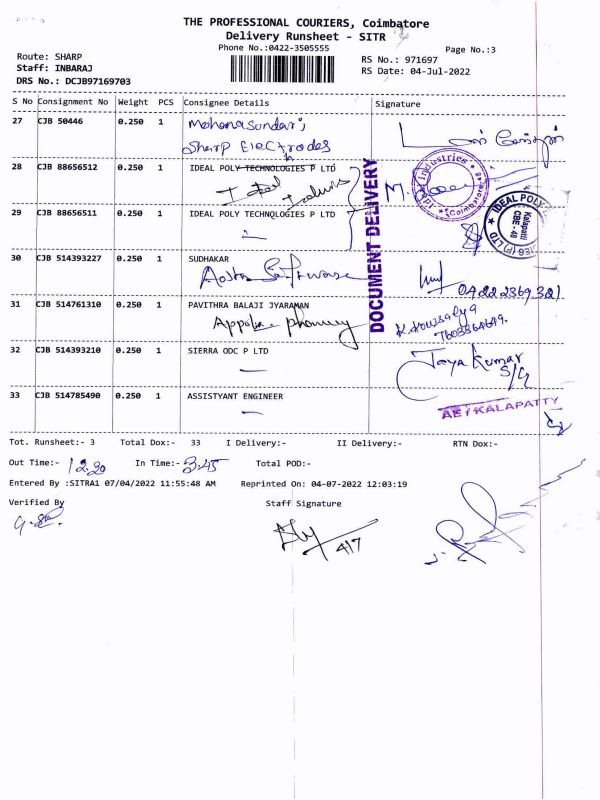 THE PROFESSIONAL COURIERS, Coimbatore
Delivery Runsheet - SITR
Phone No.:0422-3505555
Page No.:3
Route: SHARP
Staff: INBARAJ
DRS No.: DCJB97169703
RS No.: 971697
RS Date: 04-Jul-2022
S No Consignment No Weight PCS Consignee Details Signature
27 CJB 50446 0.250 1 Mohanasundar;
Sharp Electrodes
28 CJB 88656512 0.250 1 IDEAL POLY TECHNOLOGIES P LTD
Ideal
29 CJB 88656511 0.250 1 IDEAL POLY TECHNOLOGIES P LTD
DOCUMENT DELIVERY
Industries
Coimbatore
IDEAL POLY
Kalapatti
CBE - 48
(P) LTD
30 CJB 514393227 0.250 1 SUDHAKAR
Aosta Software
04222369321
31 CJB 514761310 0.250 1 PAVITHRA BALAJI JYARAMAN
K. Kousalya
7603864649.
32 CJB 514393210 0.250 1 SIERRA ODC P LTD
Jaya Kumar
S/G
33 CJB 514785490 0.250 1 ASSISTYANT ENGINEER
AE / KALAPATTY
Tot. Runsheet:- 3 Total Dox:- 33 I Delivery:- II Delivery:- RTN Dox:-
Out Time:- 12.20 In Time:- 3.45 Total POD:-
Entered By :SITRA1 07/04/2022 11:55:48 AM Reprinted On: 04-07-2022 12:03:19
Verified By Staff Signature
4/7